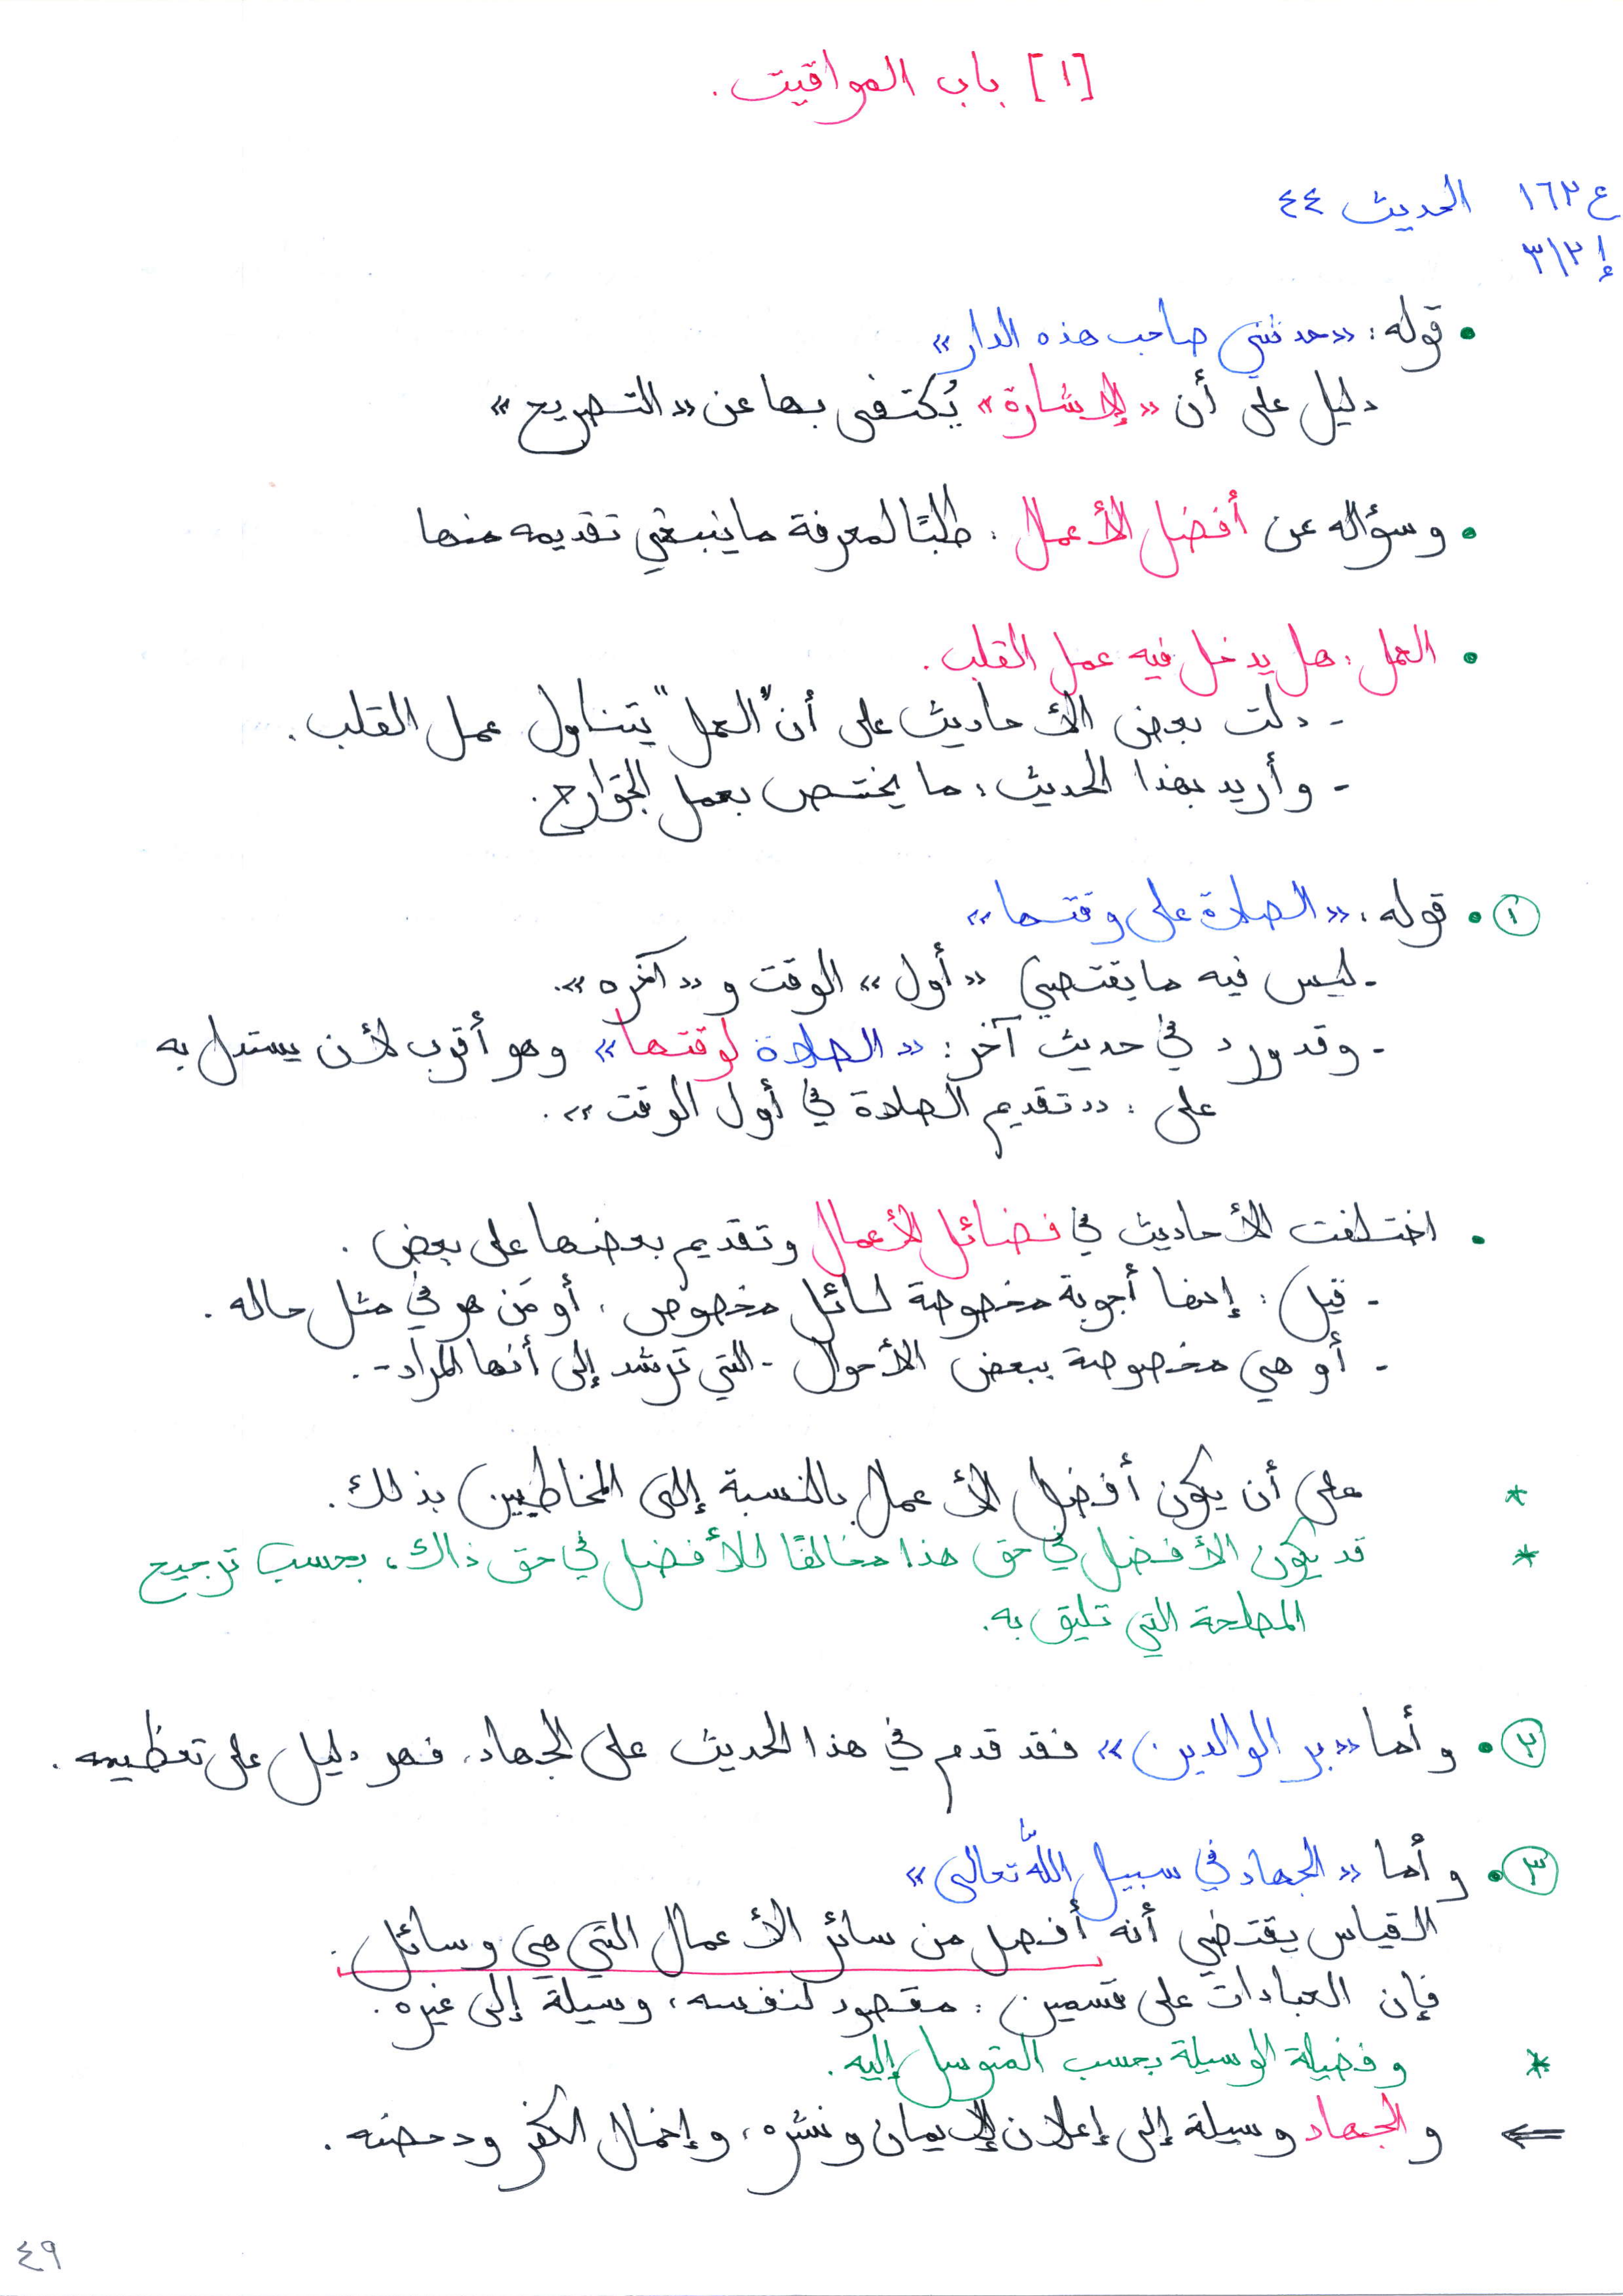 [١] باب المواقيت.
ع ١٦٢ الحديث ٤٤
إ ٣/٢
• قوله: «حدثني صاحب هذه الدار»
دليل على أن «الإشارة» يُكتفى بها عن «التصريح»
• وسؤاله عن أفضل الأعمال: طلبًا لمعرفة ما ينبغي تقديمه منها
• العمل: هل يدخل فيه عمل القلب.
- دلت بعض الأحاديث على أن "العمل" يتناول عمل القلب.
- وأريد بهذا الحديث: ما يختص بعمل الجوارح.
① • قوله: «الصلاة على وقتها»
- ليس فيه ما يقتضي «أول» الوقت و«آخره».
- وقد ورد في حديث آخر: «الصلاة لوقتها» وهو أقرب لأن يستدل به
على: «تقديم الصلاة في أول الوقت».
• اختلفت الأحاديث في فضائل الأعمال وتقديم بعضها على بعض.
- قيل: إنها أجوبة مخصوصة لسائل مخصوص، أو مَن هو في مثل حاله.
- أو هي مخصوصة ببعض الأحوال - التي ترشد إلى أنها المراد -.
* على أن يكون أفضل الأعمال بالنسبة إلى المخاطبين بذلك.
* قد يكون الأفضل في حق هذا مخالفًا للأفضل في حق ذاك، بحسب ترجيح
المصلحة التي تليق به.
② • وأما «بر الوالدين» فقد قدم في هذا الحديث على الجهاد، فهو دليل على تعظيمه.
③ • وأما «الجهاد في سبيل اللّه تعالى»
القياس يقتضي أنه أفضل من سائر الأعمال التي هي وسائل.
فإن العبادات على قسمين: مقصود لنفسه، وسيلة إلى غيره.
* وفضيلة الوسيلة بحسب المتوسل إليه.
⇐ والجهاد وسيلة إلى إعلان الإيمان ونشره، وإخمال الكفر ودحضه.
٤٩